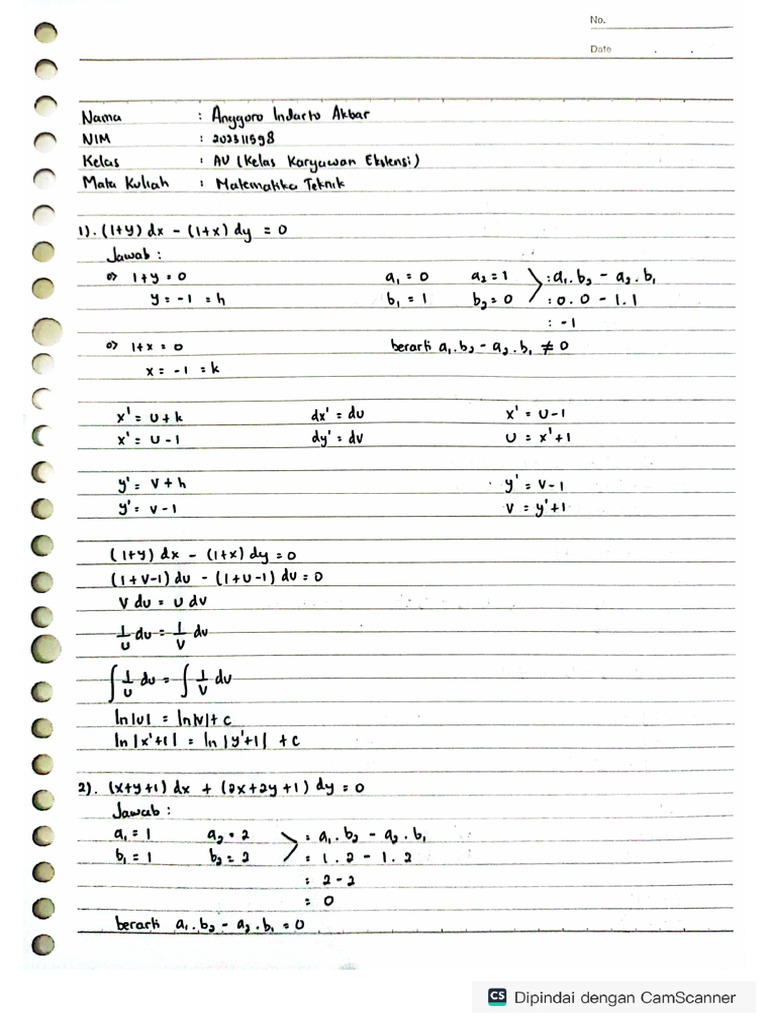 No.
Date . .
Nama : Anggoro Indarto Akbar
NIM : 202311598
Kelas : AU (Kelas Karyawan Ekstensi)
Mata Kuliah : Matematika Teknik
1). (1+y) dx - (1+x) dy = 0
Jawab :
o> 1+y = 0 a₁ = 0 a₂ = 1 > : a₁.b₂ - a₂.b₁
y = -1 = h b₁ = 1 b₂ = 0 : 0.0 - 1.1
: -1
o> 1+x = 0 berarti a₁.b₂ - a₂.b₁ ≠ 0
x = -1 = k
x' = u+k dx' = du x' = u-1
x' = u-1 dy' = dv u = x'+1
y' = v+h y' = v-1
y' = v-1 v = y'+1
(1+y) dx - (1+x) dy = 0
(1+v-1) du - (1+u-1) dv = 0
v du = u dv
1/u du = 1/v dv
∫ 1/u du = ∫ 1/v dv
ln|u| = ln|v| + c
ln|x'+1| = ln|y'+1| + c
2). (x+y+1) dx + (2x+2y+1) dy = 0
Jawab :
a₁ = 1 a₂ = 2 > = a₁.b₂ - a₂.b₁
b₁ = 1 b₂ = 2 = 1.2 - 1.2
= 2-2
= 0
berarti a₁.b₂ - a₂.b₁ = 0
CS Dipindai dengan CamScanner